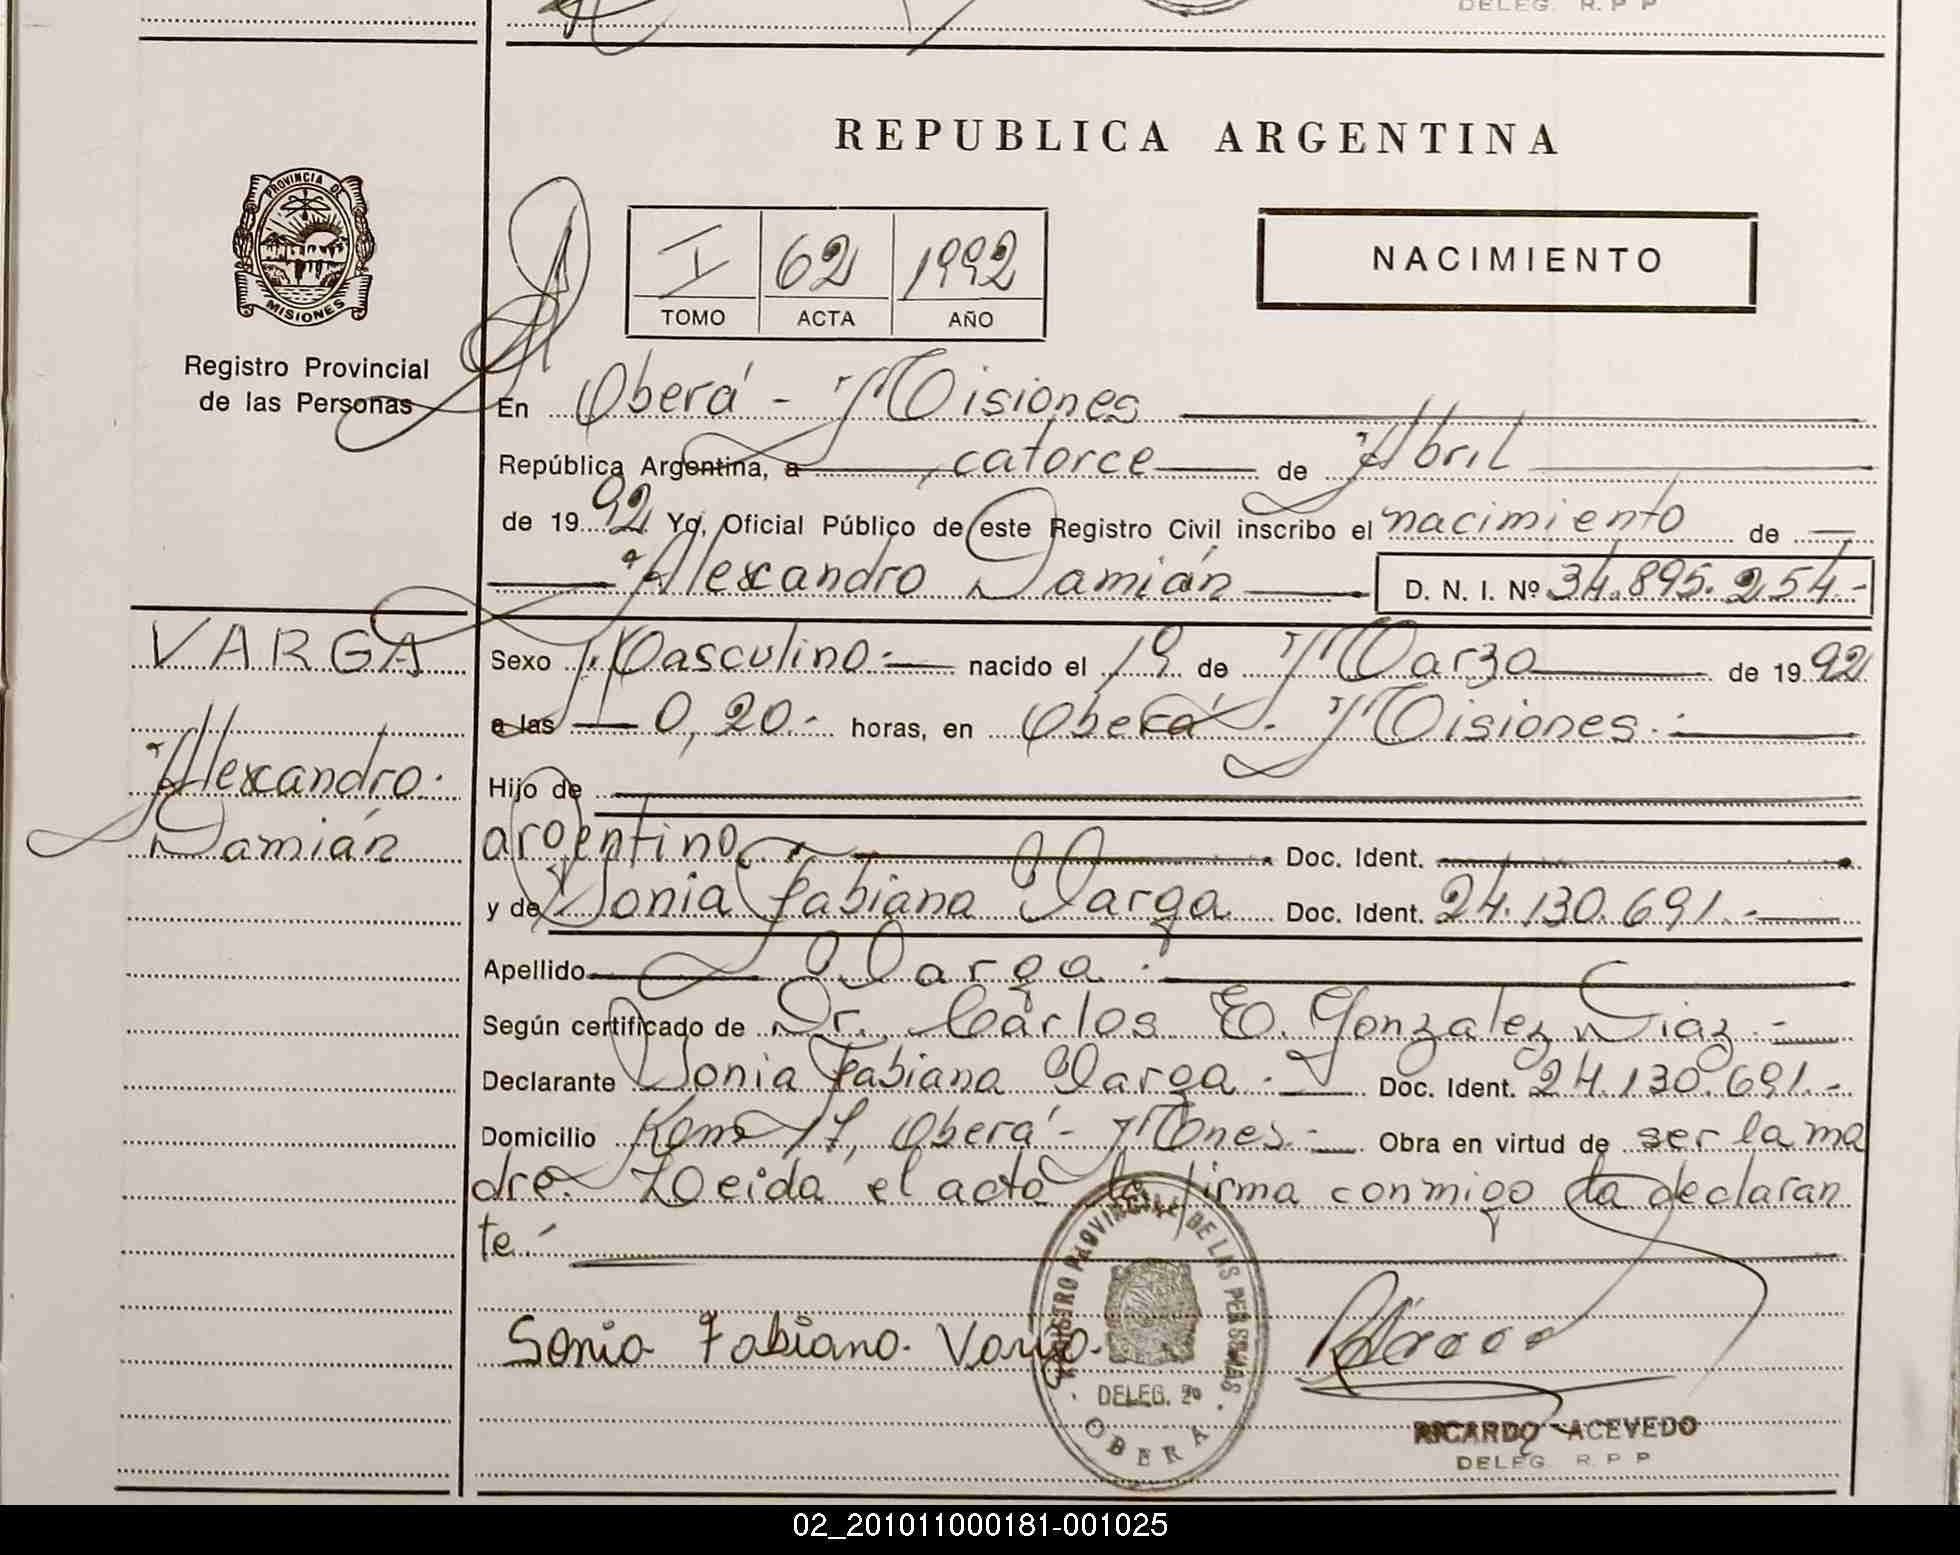 DELEG. R. P P
REPUBLICA ARGENTINA
PROVINCIA DE
MISIONES
Registro Provincial
de las Personas
I 62 1992
TOMO ACTA AÑO
NACIMIENTO
En Oberá - Misiones
República Argentina, a catorce de Abril
de 1992 Yo, Oficial Público de este Registro Civil inscribo el nacimiento de
Alexandro Damián D. N. I. Nº 34.895.254.-
VARGA
Alexandro
Damián
Sexo Masculino.- nacido el 19 de Marzo de 1992
a las 0,20.- horas, en Oberá - Misiones.-
Hijo de
argentino. Doc. Ident.
y de Sonia Fabiana Varga Doc. Ident. 24.130.691.-
Apellido Varga.-
Según certificado de Dr. Carlos E. Gonzalez Diaz.-
Declarante Sonia Fabiana Varga.- Doc. Ident. 24.130.691.-
Domicilio Oberá - Mnes.- Obra en virtud de ser la ma
dre. Leida el acta la firma conmigo la declaran
te.-
Sonia Fabiana. Varga.
REGISTRO PROVINCIAL DE LAS PERSONAS
DELEG. 20
OBERA
RICARDO ACEVEDO
DELEG. R. P P
02_201011000181-001025